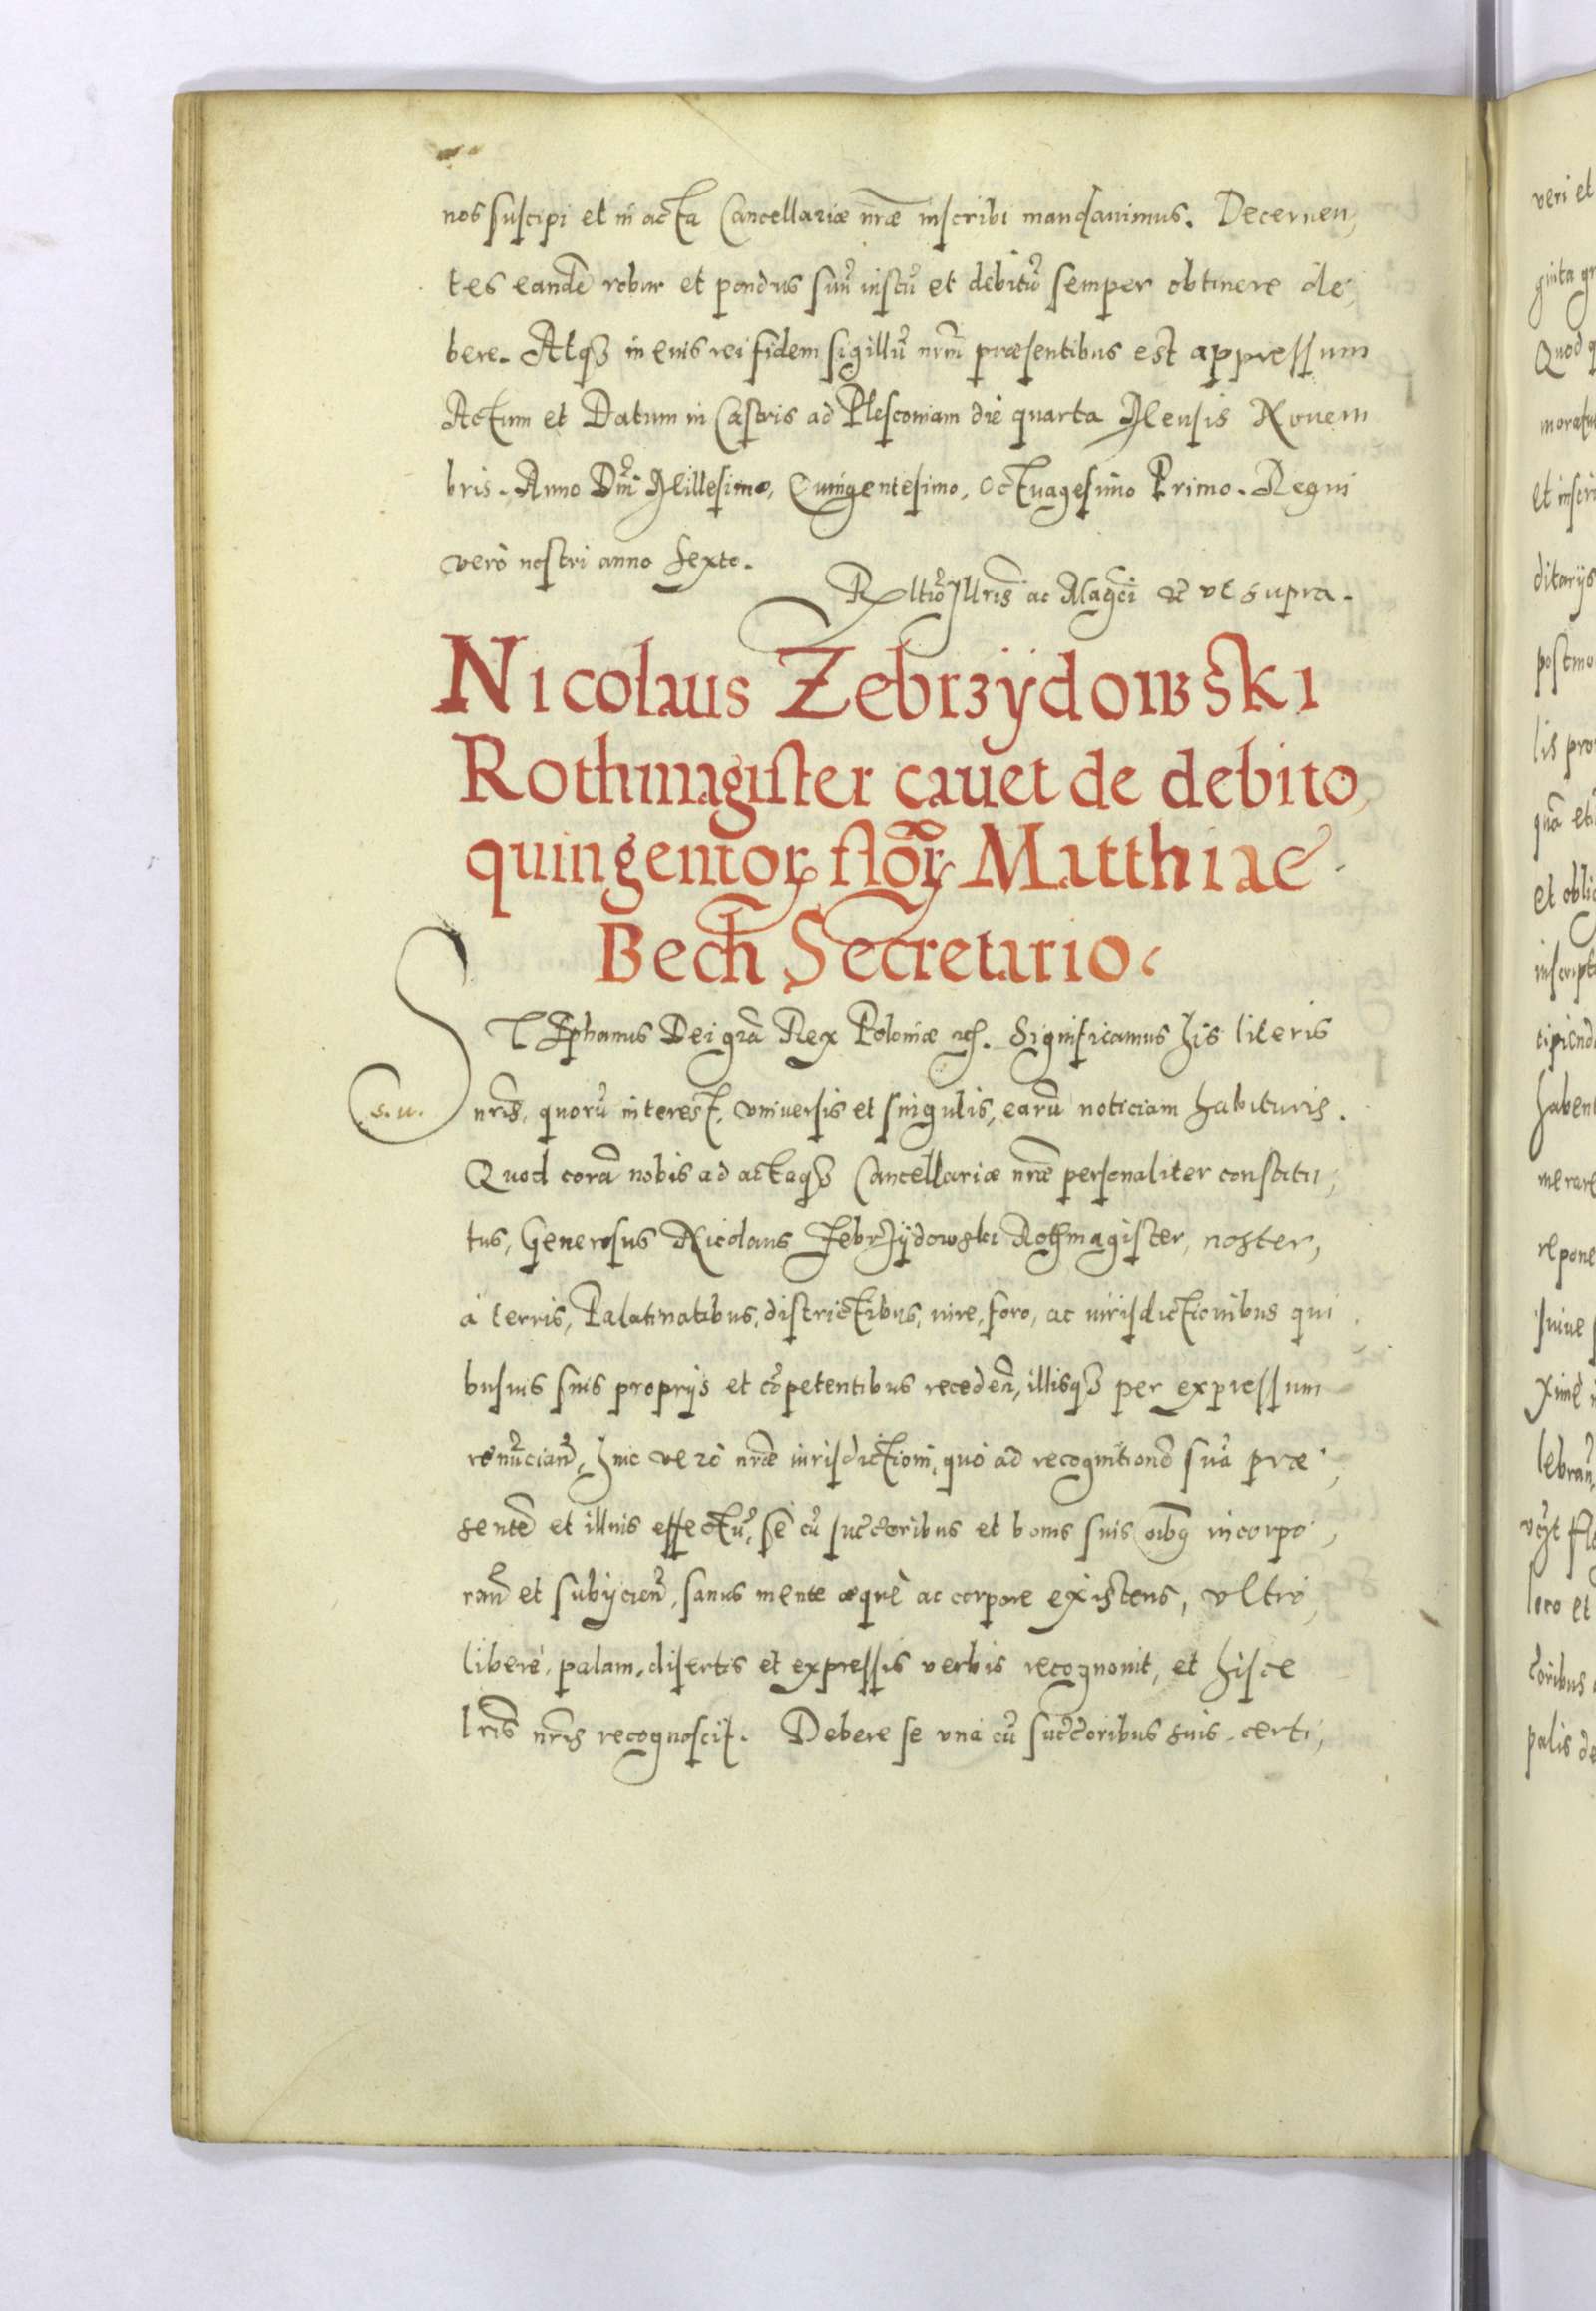 nos suscipi et in acta Cancellariæ nr̃æ inscribi mandauimus. Decernen,
tes eandẽ robur et pondus suũ iustũ et debitũ semper obtinere de,
bere. Atqꝫ in euis rei fidem sigillũ nrm̃ præsentibus est appressum
Actum et Datum in Castris ad Plesconiam die quarta Mensis Nouem
bris. Anno Dnĩ Millesimo, Quingentesimo, Octuagesimo Primo. Regni
verò nostri anno Sexto.
Rltiõ Illris̃ ac Magcĩ &c vt supra.
Nicolaus Zebrzÿdowski
Rothmagister cauet de debito,
quingentoꝝ floꝝ̃ Matthiae
Bech Secretario.
STephanus Dei grã Rex Poloniæ &c. Significamus his literis
s. u.
nr̃is, quorũ interest, vniuersis et singulis, earũ noticiam habituris.
Quod corã nobis ad actaqꝫ Cancellariæ nr̃æ personaliter constitu,
tus, Generosus Nicolaus Zebrzÿdowski Rothmagister, noster,
à terris, Palatinatibus, districtibus, iure, foro, ac iurisdictionibus qui
busuis suis proprijs et cõpetentibus recedeñ, illisqꝫ per expressum
renũciañ, huic verò nr̃æ iurisdictioni, quò ad recognitionẽ suã præ,
sentẽ et illius effectũ, se cũ succ̃oribus et bonis suis oĩbꝫ incorpo,
rañ et subijcieñ, sanus mente æquè ac corpore existens, vltrò,
liberè, palam, disertis et expressis verbis recognouit, et hisce
lr̃is nr̃is recognoscit. Debere se vnà cũ succ̃oribus suis certi,
veri et
Quod q
et inscri
ditarijs
postmo
lis pro
quã eti
et oblig
inscript
cipiend
habent
merare
repone
loco et
toribus
palis de